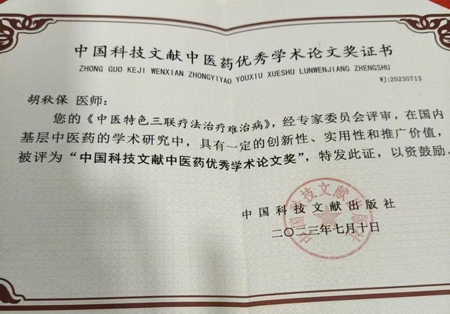 中国科技文献中医药优秀学术论文奖证书
ZHONG GUO KEJI WENXIAN ZHONGYIYAO YOUXIU XUESHU LUNWENJIANG ZHENGSHU
WJ:20230713
胡秋保 医师:
您的《中医特色三联疗法治疗难治病》,经专家委员会评审,在国内
基层中医药的学术研究中,具有一定的创新性、实用性和推广价值,
被评为“中国科技文献中医药优秀学术论文奖”,特发此证,以资鼓励。
中国科技文献出版社
二〇二三年七月十日
中国科技文献出版社